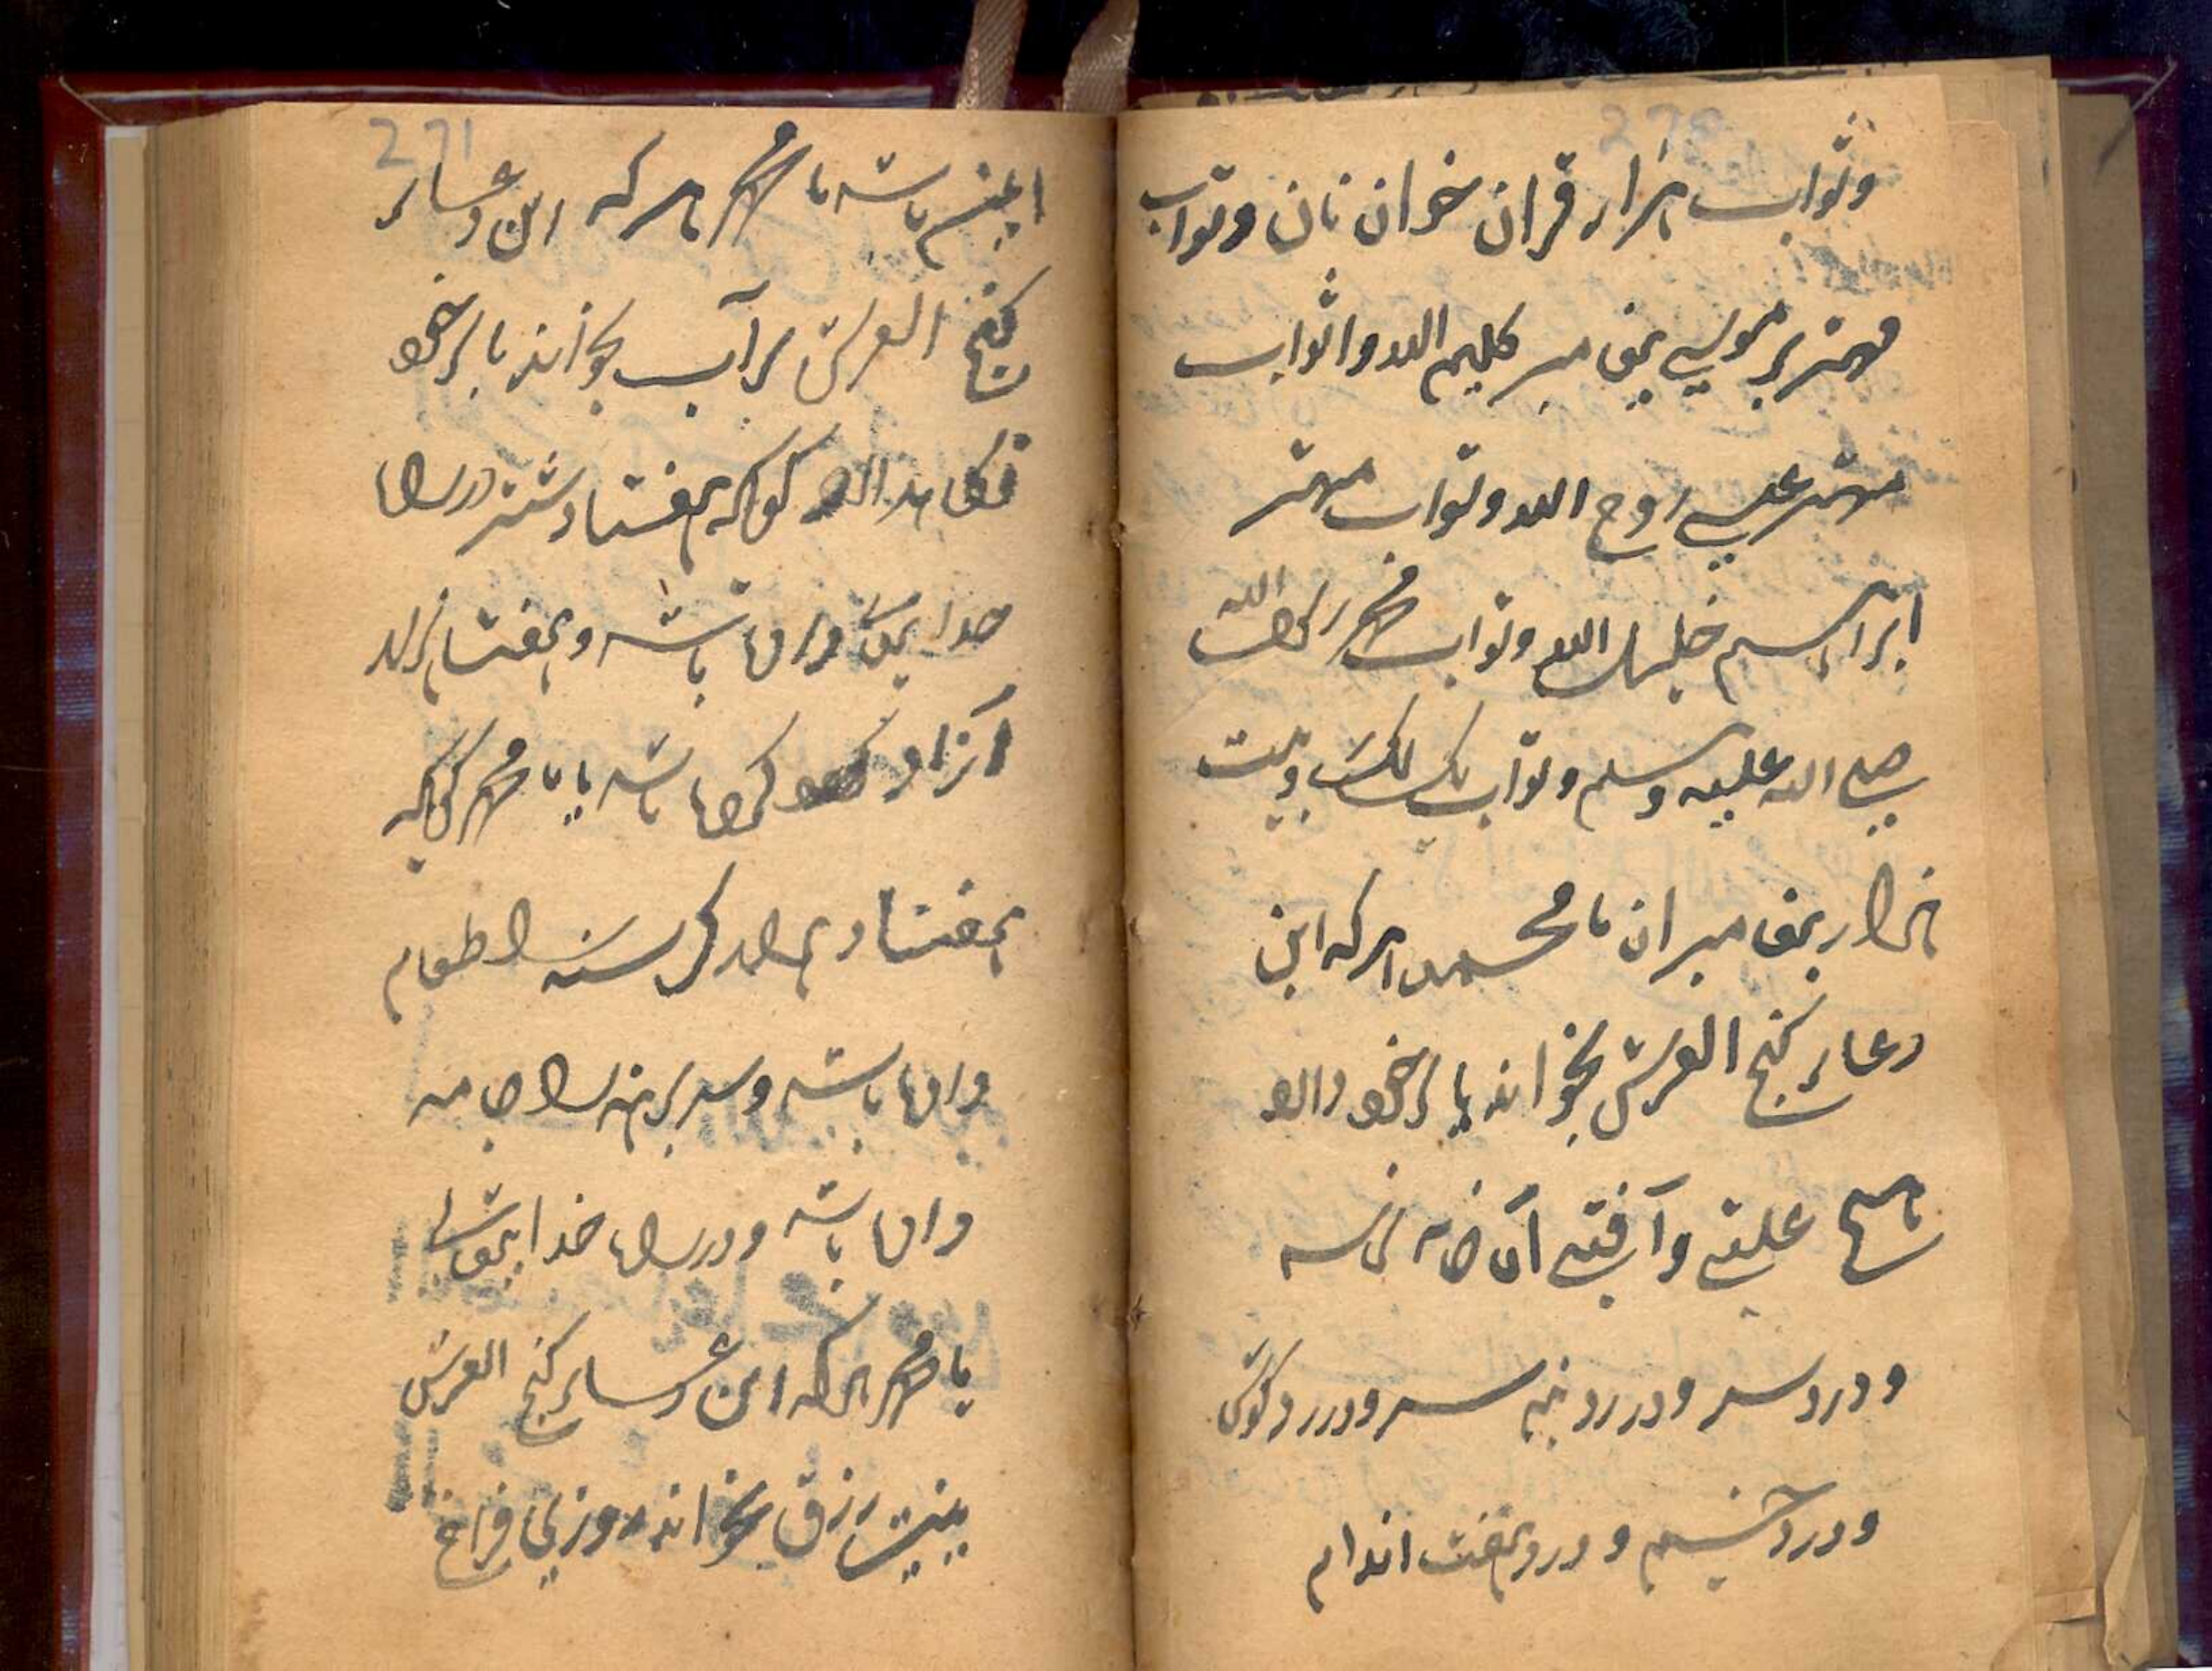 وثواب هزار قران خوان نان وثواب
مهتر موسی پیغامبر کلیم الله و اثواب
مهتر عیسی روح الله وثواب مهتر
ابراهیم خلیل الله وثواب محمد رسول الله
صلی الله علیه وسلم وثواب یک لک وبیست
هزار پیغامبران یا محمد هر که این
دعای گنج العرش بخواند یا بر خود دارد
هیچ علتی وآفتی آن خانه نرسد
ودرد سر ودرد نیم سر ودرد گوش
ودرد چشم ودرد هفت اندام
271
باشد یا محمد هر که این دعای
گنج العرش بر آب بخواند یا بر خود
نگاه دارد گویا که هفتاد شتر در راه
خدا داده باشد وهفتاد
آزاد کرده باشد یا محمد گویا که
هفتاد گرسنه را طعام
داده باشد و برهنه را جامه
داده باشد و در راه خدا
یا محمد هر که این دعای گنج العرش
بنیت رزق بخواند روزی فراخ